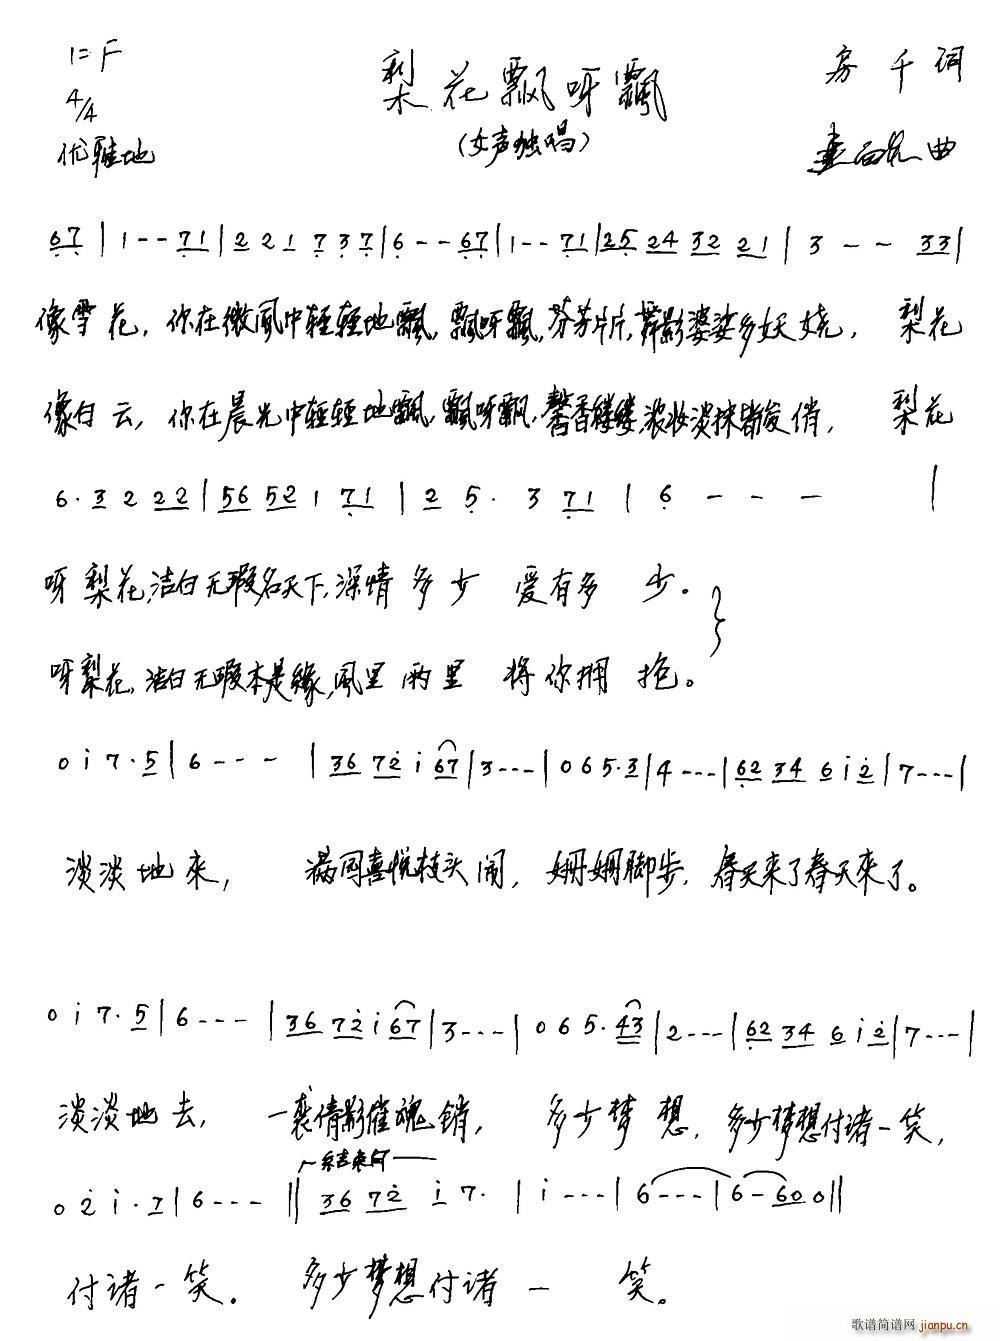 1=F
梨花飘呀飘
房千词
4/4
(女声独唱)
优雅地
曲
67 | 1 - - 71 | 2 2 1 7 3 7 | 6 - - 67 | 1 - - 71 | 25 24 32 21 | 3 - - 33 |
像雪花，你在微风中轻轻地飘，飘呀飘，芬芳片片，舞影婆娑多妖娆， 梨花
像白云，你在晨光中轻轻地飘，飘呀飘，馨香缕缕，浓妆淡抹皆俊俏， 梨花
6· 3 2 22 | 56 52 1 71 | 2 5· 3 71 | 6 - - - |
呀梨花，洁白无瑕名天下，深情多少 爱有多 少。
呀梨花，洁白无瑕本是缘，风里雨里 将你拥 抱。
0 i 7· 5 | 6 - - - | 36 72 i 67 | 3 - - - | 0 6 5· 3 | 4 - - - | 62 34 6 i 2 | 7 - - - |
淡淡地来， 满园喜悦枝头闹，姗姗脚步，春天来了春天来了。
0 i 7· 5 | 6 - - - | 36 72 i 67 | 3 - - - | 0 6 5· 43 | 2 - - - | 62 34 6 i 2 | 7 - - - |
淡淡地去， 一袭倩影催魂销， 多少梦想，多少梦想付诸一笑，
结束句
0 2 i· 7 | 6 - - - || 36 72 i 7· | i - - - | 6 - - - | 6 - 60 0 ||
付诸一笑。 多少梦想付诸一 笑。
歌谱简谱网 jianpu.cn